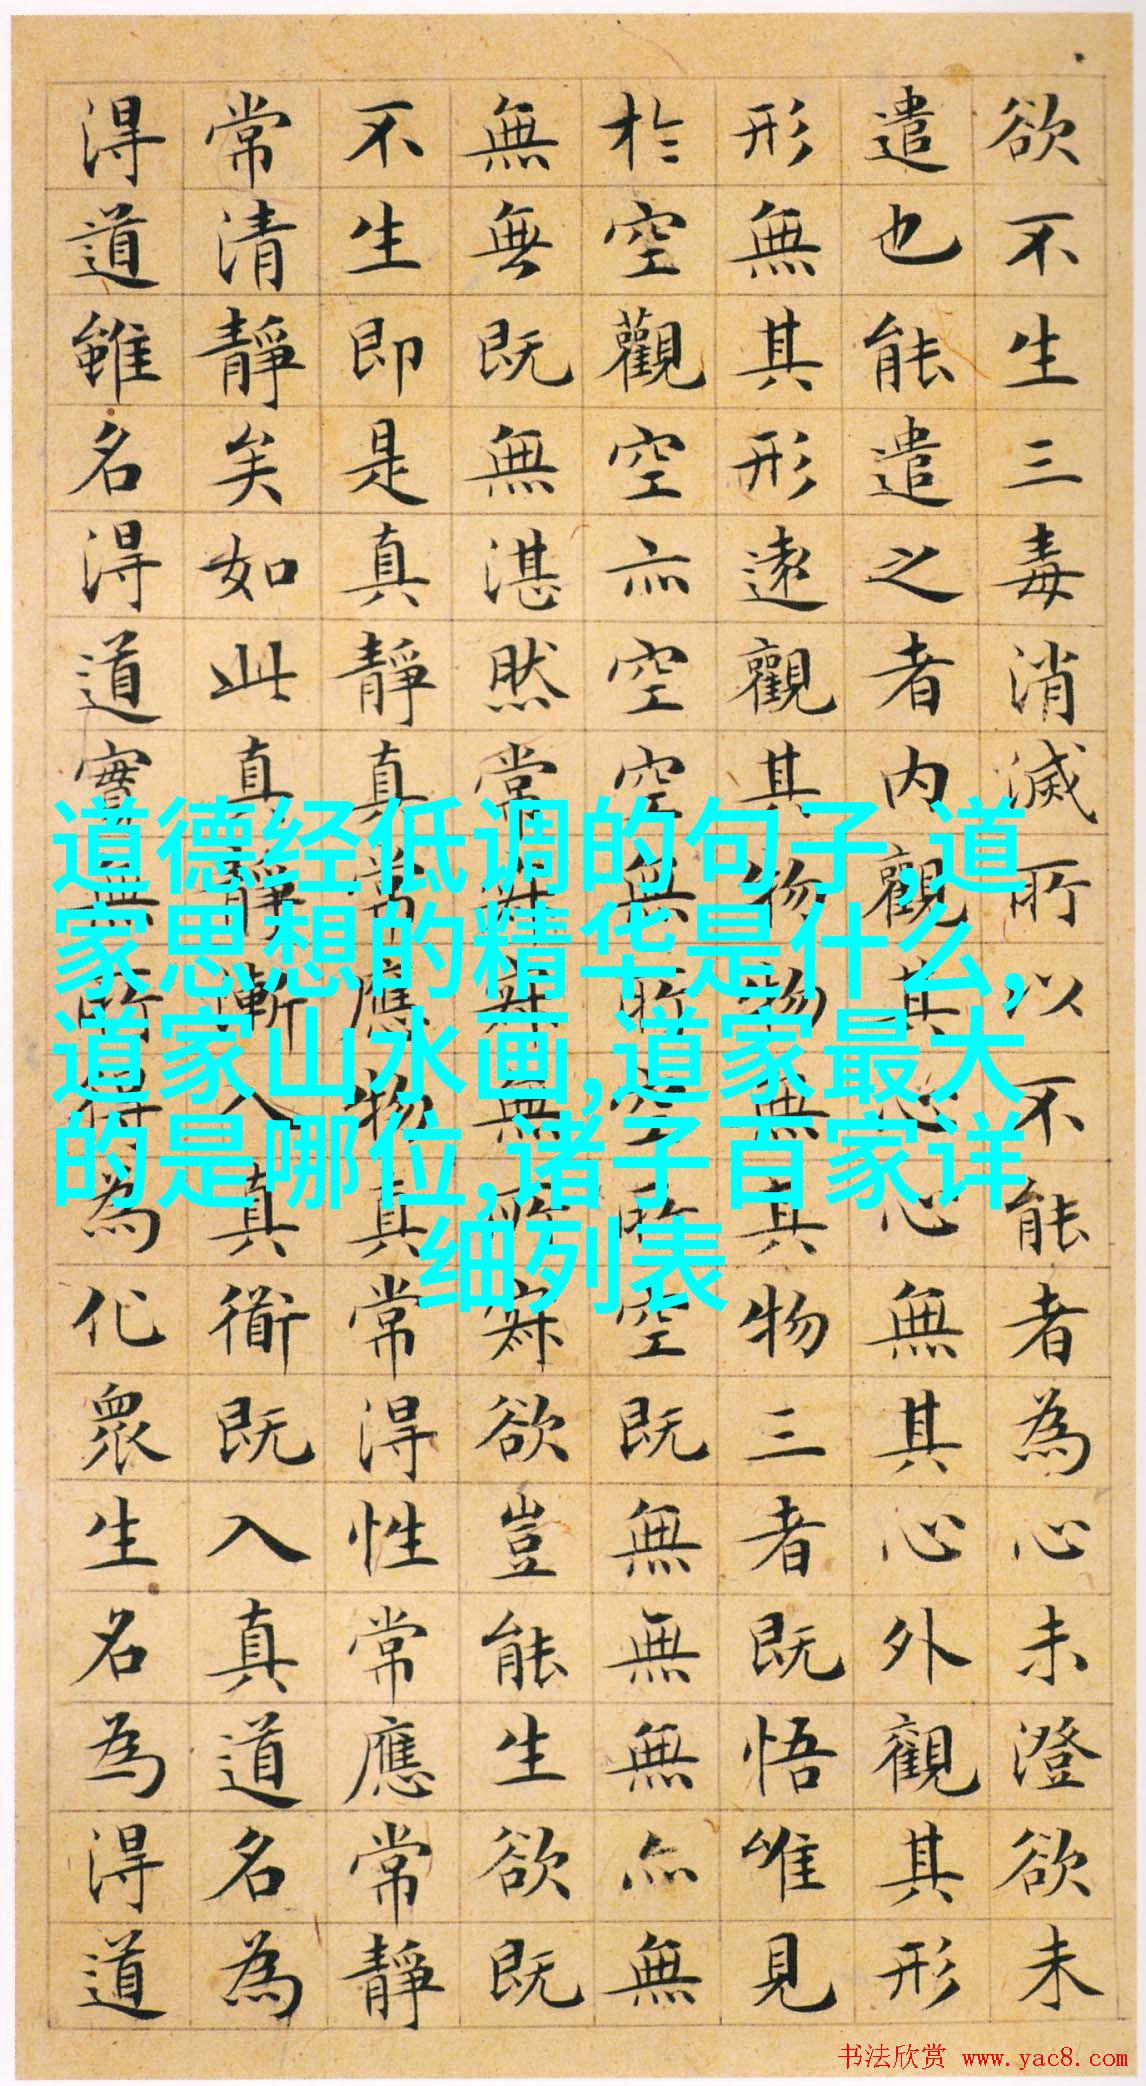 欲不生三毒消滅所以不能者為心未澄欲未
遣也能遣之者内觀其心心無其心外觀其形
形無其形遠觀其物物無其物三者既悟唯見
於空觀空亦空空無所空所空既無無無亦無
無無既無湛然常寂寂無所寂欲豈能生欲既
不生即是真靜真常應物真常得性常應常靜
常清靜矣如此真靜漸入真衜既入真道名為
得道雖名得道實無所得為化眾生名為得道
道德经低调的句子,道
家思想的精华是什么,
道家山水画,道家最大
的是哪位,诸子百家详
细列表
书法欣赏 www.yac8.com